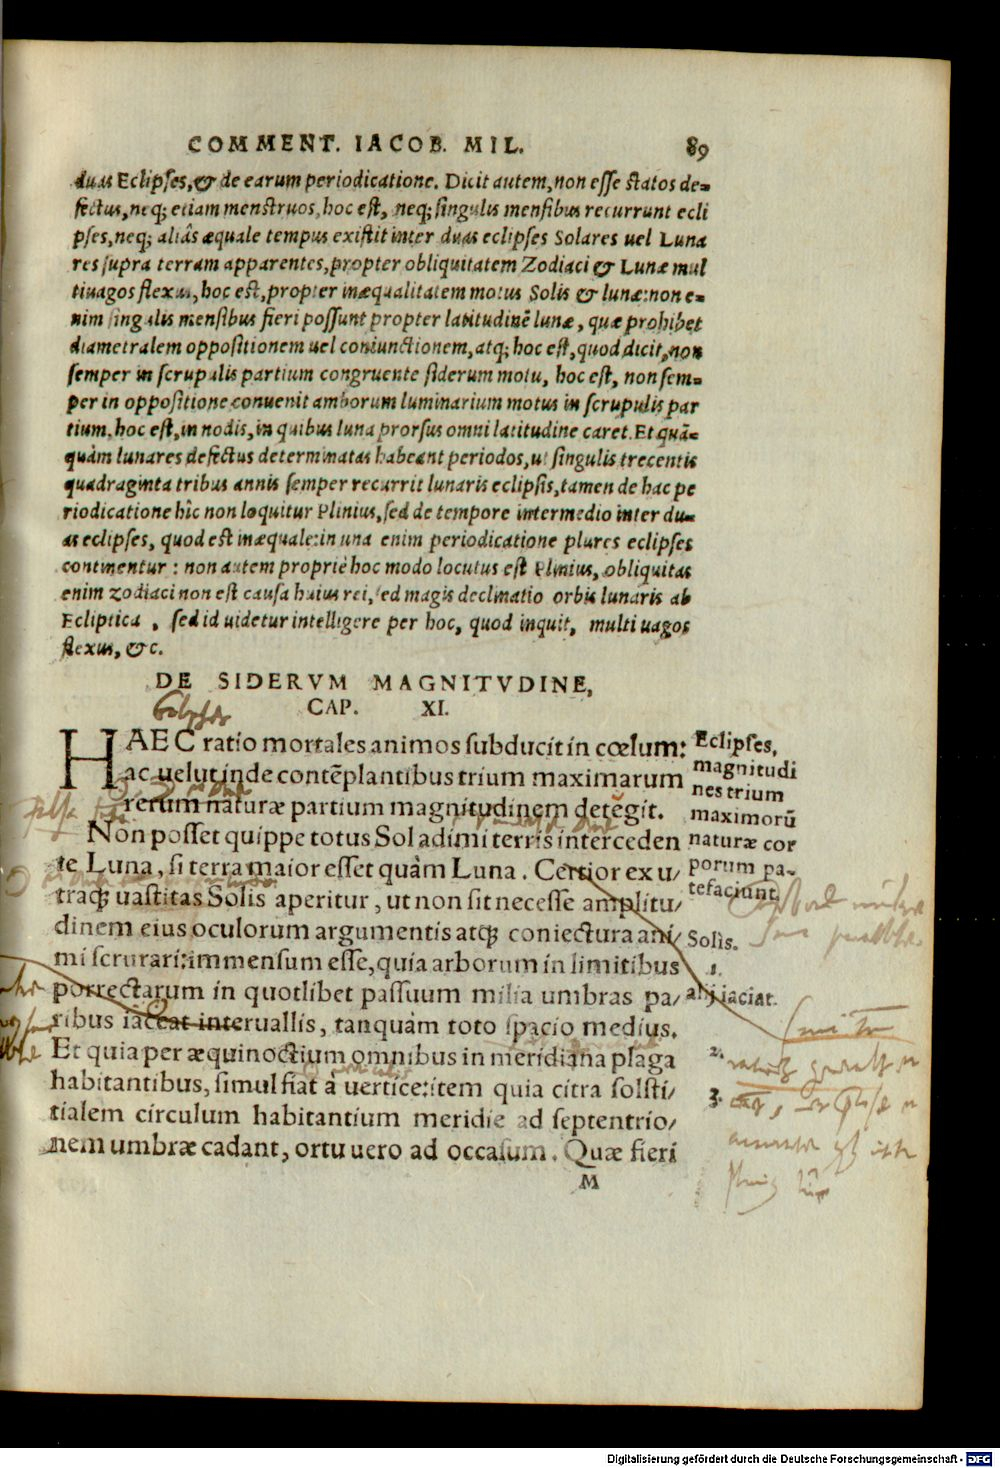 COMMENT. IACOB. MIL. 89
duas Eclipses, & de earum periodicatione. Dicit autem, non esse statos de=
fectus, neq; etiam menstruos, hoc est, neq; singulis mensibus recurrunt ecli
pses, neq; aliâs æquale tempus existit inter duas eclipses Solares uel Luna
res supra terram apparentes, propter obliquitatem Zodiaci & Lunæ mul
tiuagos flexus, hoc est, propter inæqualitatem motus Solis & lunæ: non e=
nim singulis mensibus fieri possunt propter latitudinē lunæ, quæ prohibet
diametralem oppositionem uel coniunctionem, atq; hoc est, quod dicit, non
semper in scrupulis partium congruente siderum motu, hoc est, non sem=
per in oppositione conuenit amborum luminarium motus in scrupulis par
tium, hoc est, in nodis, in quibus luna prorsus omni latitudine caret. Et quā=
quàm lunares defectus determinatas habeant periodos, ut singulis trecentis
quadraginta tribus annis semper recurrit lunaris eclipsis, tamen de hac pe
riodicatione hîc non loquitur Plinius, sed de tempore intermedio inter du=
as eclipses, quod est inæquale: in una enim periodicatione plures eclipses
continentur : non autem propriè hoc modo locutus est Plinius, obliquitas
enim zodiaci non est causa huius rei, sed magis declinatio orbis lunaris ab
Ecliptica , sed id uidetur intelligere per hoc, quod inquit, multi uagos
flexus, &c.
DE SIDERVM MAGNITVDINE,
CAP. XI.
HAEC ratio mortales animos subducit in cœlum:
ac uelut inde contēplantibus trium maximarum
rerum naturæ partium magnitudinem detegit.
Non posset quippe totus Sol adimi terris interceden
te Luna, si terra maior esset quàm Luna. Certior ex u/
traq; uastitas Solis aperitur, ut non sit necesse amplitu/
dinem eius oculorum argumentis atq; coniectura ani/
mi scrutari: immensum esse, quia arborum in limitibus
porrectarum in quotlibet passuum milia umbras pa/
ribus iaceat interuallis, tanquàm toto spacio medius.
Et quia per æquinoctium omnibus in meridiana plaga
habitantibus, simul fiat à uertice: item quia citra solsti/
tialem circulum habitantium meridie ad septentrio/
nem umbræ cadant, ortu uero ad occasum. Quæ fieri
M
Eclipses,
magnitudi
nes trium
maximorū
naturæ cor
porum pa-
tefaciunt
Solis.
1.
alij iaciat.
2.
3.
Digitalisierung gefördert durch die Deutsche Forschungsgemeinschaft - DFG